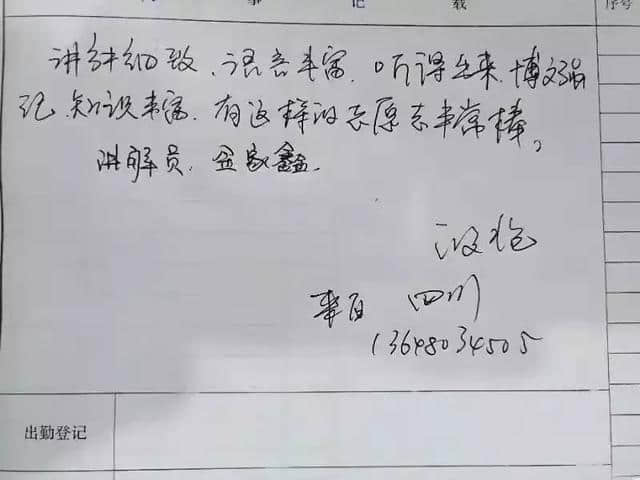 事 记 载 序号
讲解细致、语言丰富、听得出来,博文强
记、知识丰富、有这样的志愿者非常棒。
讲解员、金家鑫.
来自 四川
13648034505
出勤登记